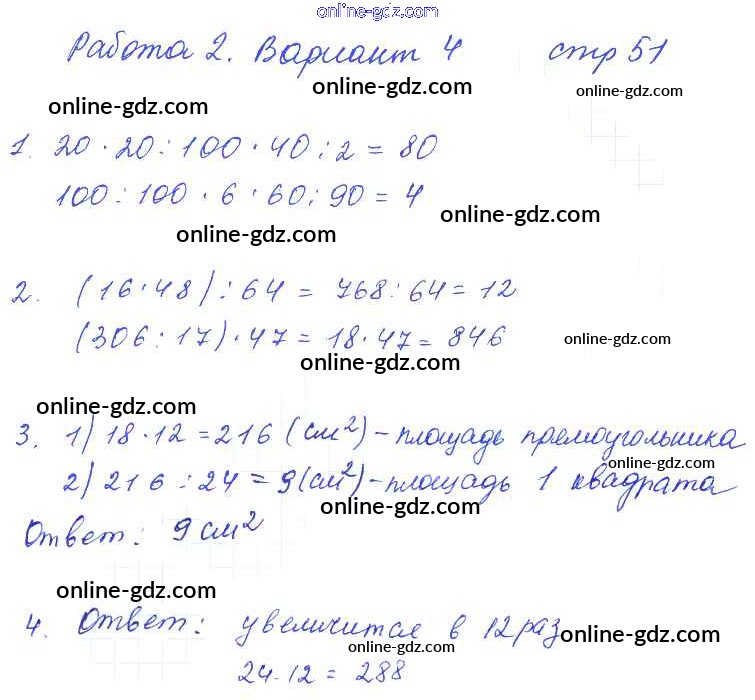 online-gdz.com
Работа 2. Вариант 4 стр 51
online-gdz.com
online-gdz.com
1. 20 · 20 : 100 · 40 : 2 = 80
100 : 100 · 6 · 60 : 90 = 4
online-gdz.com
online-gdz.com
2. (16 · 48) : 64 = 768 : 64 = 12
(306 : 17) · 47 = 18 · 47 = 846
online-gdz.com
online-gdz.com
online-gdz.com
3. 1) 18 · 12 = 216 (см²) - площадь прямоугольника
online-gdz.com
2) 216 : 24 = 9 (см²) - площадь 1 квадрата
online-gdz.com
Ответ: 9 см²
online-gdz.com
4. Ответ: увеличится в 12 раз
online-gdz.com
online-gdz.com
24 · 12 = 288